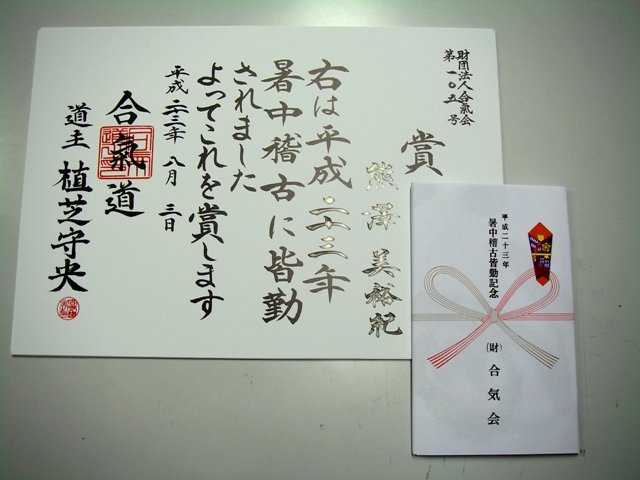 財団法人合氣会
第一〇五号
賞
熊澤美裕紀
右は平成二十三年
暑中稽古に皆勤
されました
よってこれを賞します
平成二十三年八月三日
合氣道
道主植芝守央
平成二十三年
暑中稽古皆勤記念
(財)合気会